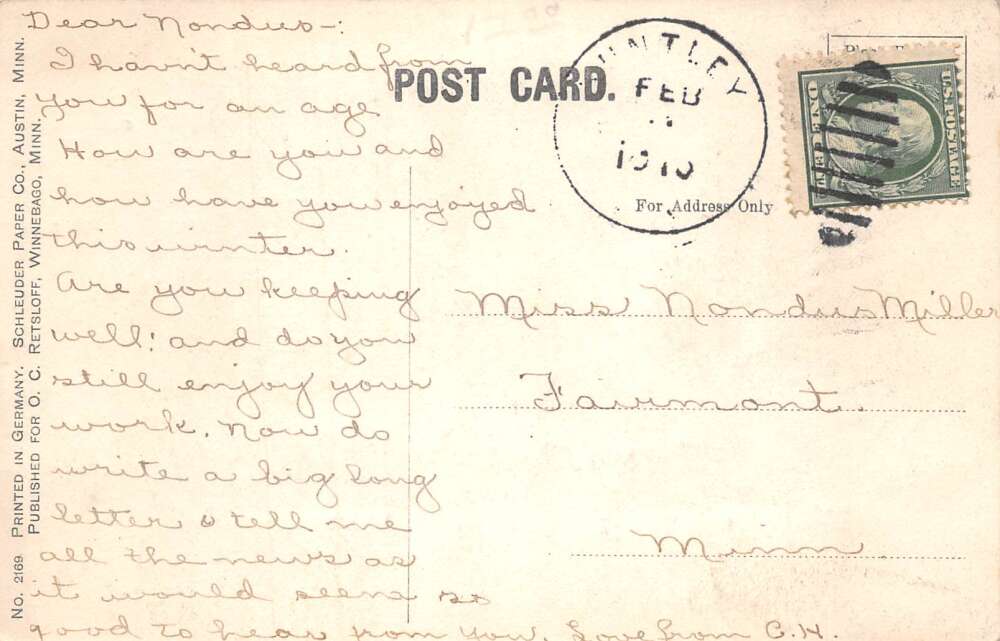 Dear Nondus-:
I havn't heard from
you for an age
How are you and
how have you enjoyed
this winter.
Are you keeping
well! and do you
still enjoy your
work. Now do
write a big long
letter & tell me
all the news as
it would seem so
good to hear from you. Love from C.H.
POST CARD.
For Address Only
HUNTLEY
FEB
1910
U.S. POSTAGE
ONE CENT
Miss Nondus Miller
Fairmont.
Minn.
No. 2169 PRINTED IN GERMANY. SCHLEUDER PAPER CO., AUSTIN, MINN.
PUBLISHED FOR O. C. RETSLOFF, WINNEBAGO, MINN.